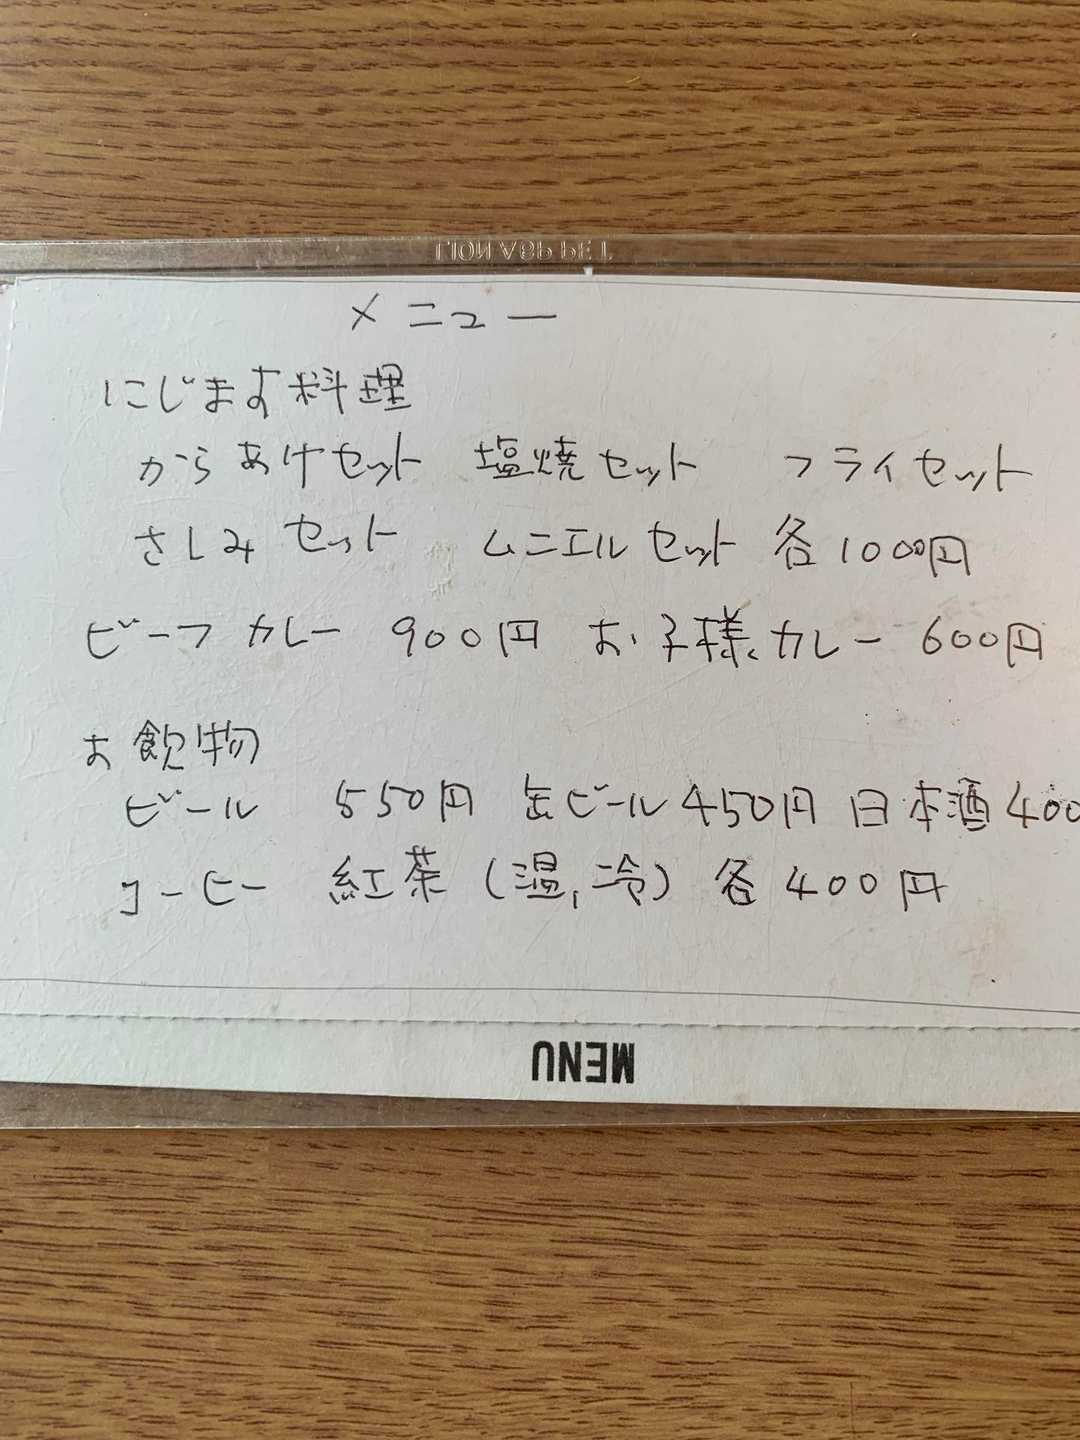 LION A69 PET
メニュー
にじます料理
からあげセット 塩焼セット フライセット
さしみセット ムニエルセット 各1000円
ビーフカレー 900円 お子様カレー 600円
お飲物
ビール 550円 缶ビール450円 日本酒400
コーヒー 紅茶(温,冷) 各400円
MENU